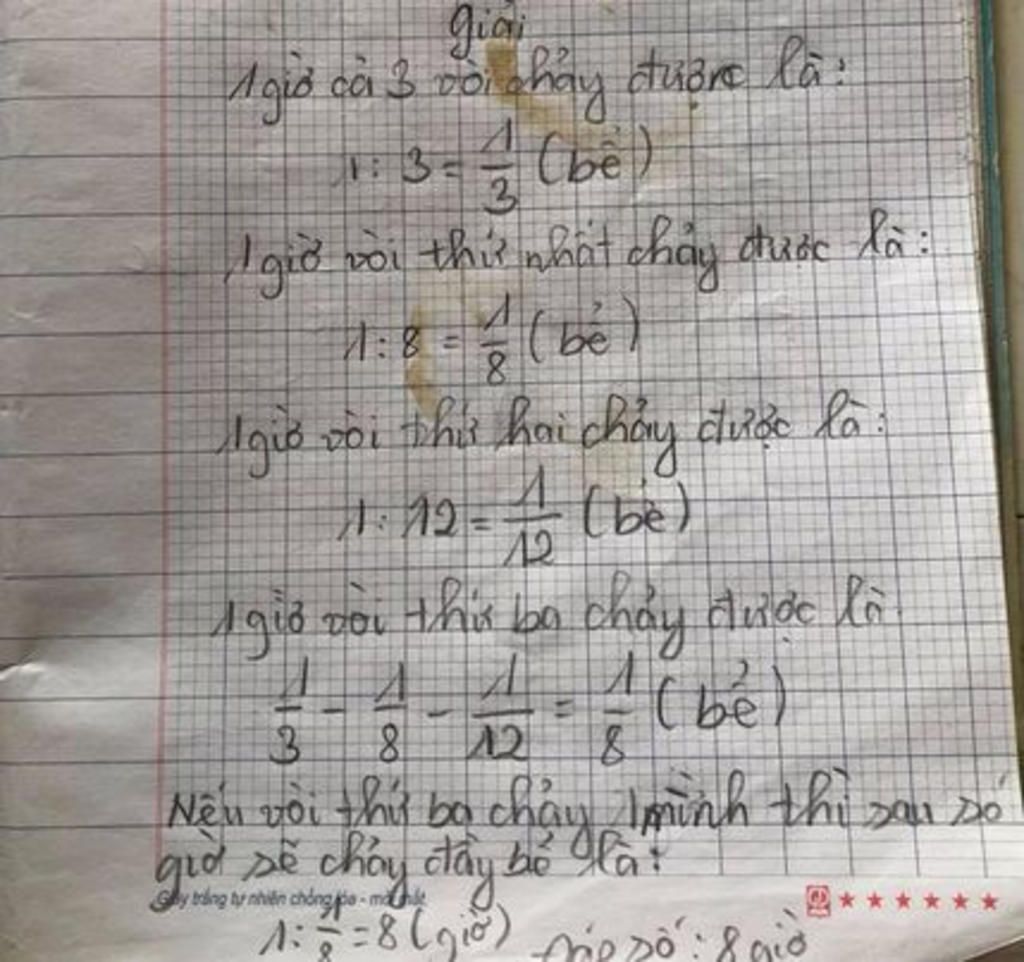 giải
1 giờ cả 3 vòi chảy được là:
1 : 3 = 1/3 (bể)
1 giờ vòi thứ nhất chảy được là:
1 : 8 = 1/8 (bể)
1 giờ vòi thứ hai chảy được là:
1 : 12 = 1/12 (bể)
1 giờ vòi thứ ba chảy được là
1/3 - 1/8 - 1/12 = 1/8 (bể)
Nếu vòi thứ ba chảy 1 mình thì sau số
giờ sẽ chảy đầy bể là:
Giấy trắng tự nhiên chống lóa - mỏi mắt
1 : 1/8 = 8 (giờ) Đáp số : 8 giờ